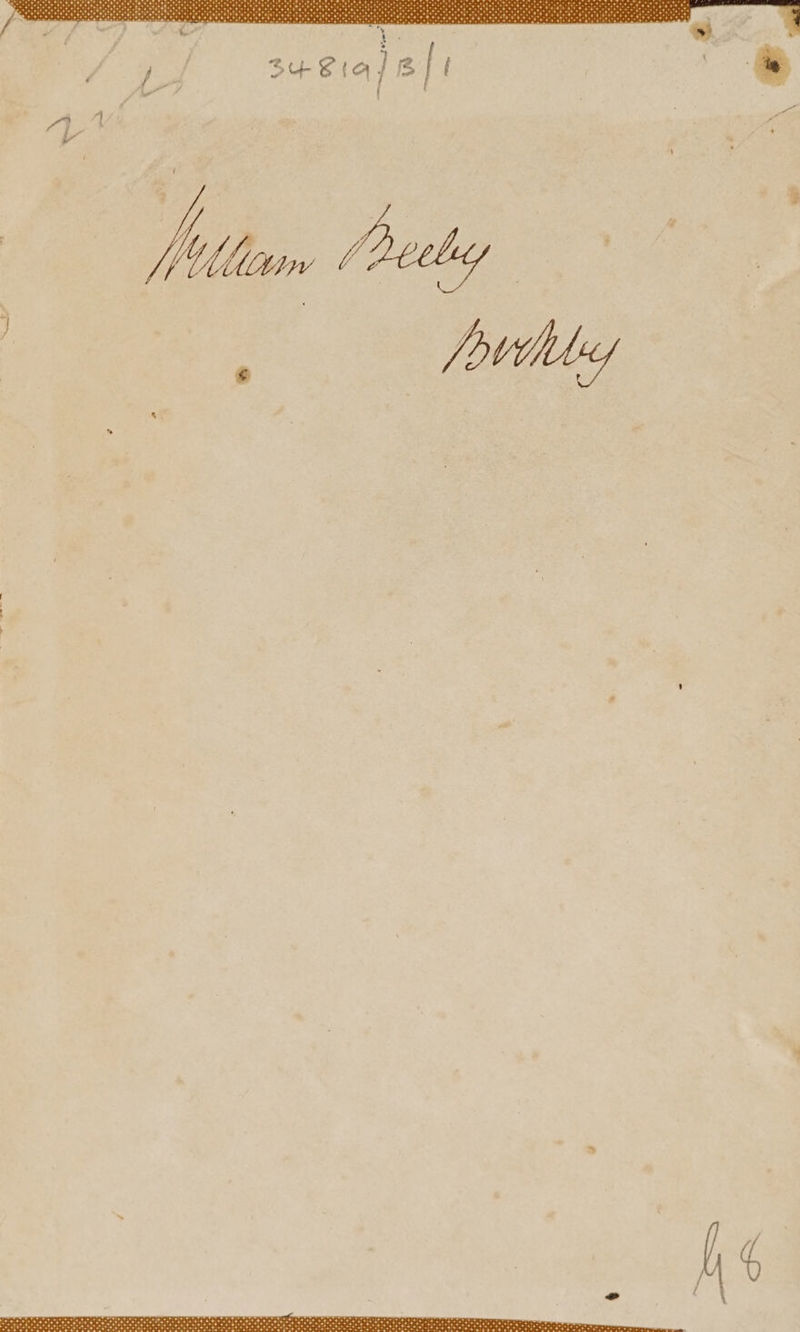 34819/B/1
William Beeby
Birkby
48